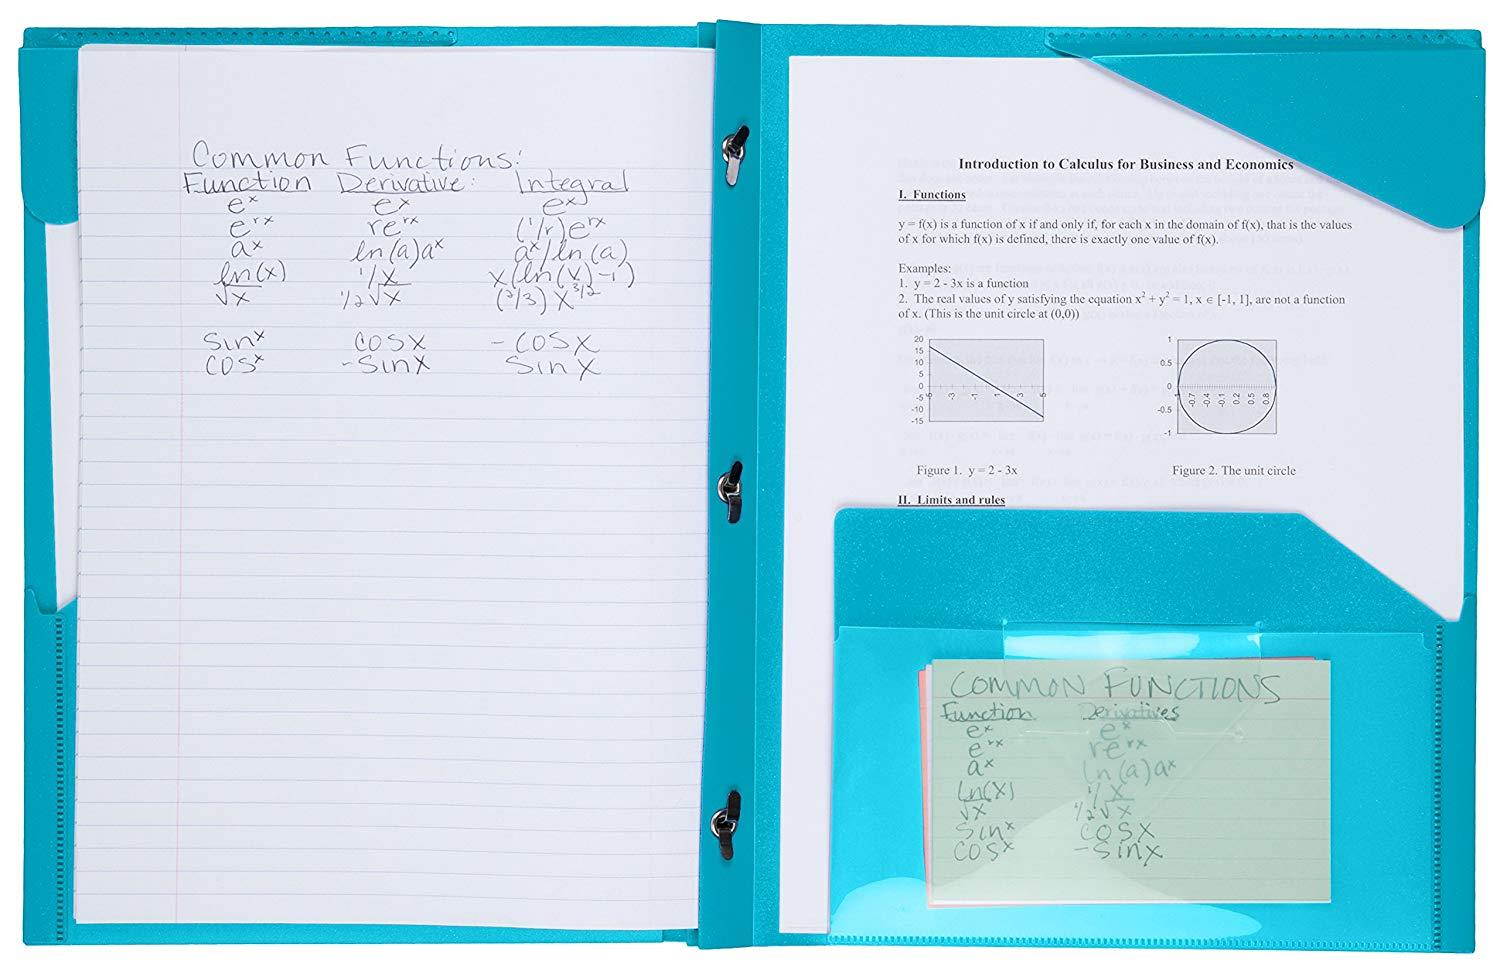 Common Functions:
Function Derivative: Integral
eˣ eˣ eˣ
eʳˣ reʳˣ (1/r)eʳˣ
aˣ ln(a)aˣ aˣ/ln(a)
ln(x) 1/x x(ln(x)-1)
√x 1/2√x (2/3)x^3/2
sinˣ cosx -cosx
cosˣ -sinx sinx
Introduction to Calculus for Business and Economics
I. Functions
y = f(x) is a function of x if and only if, for each x in the domain of f(x), that is the values
of x for which f(x) is defined, there is exactly one value of f(x).
Examples:
1. y = 2 - 3x is a function
2. The real values of y satisfying the equation x² + y² = 1, x ∈ [-1, 1], are not a function
of x. (This is the unit circle at (0,0))
20
15
10
5
0
-5
-10
-15
-3 -1 1 3 5
1
0.5
0
-0.5
-1
-0.7 -0.4 -0.1 0.2 0.5 0.8
Figure 1. y = 2 - 3x
Figure 2. The unit circle
II. Limits and rules
COMMON FUNCTIONS
Function Derivatives
eˣ eˣ
eʳˣ reʳˣ
aˣ ln(a)aˣ
ln(x) 1/x
√x 1/2√x
sinˣ cosx
cosˣ -sinx